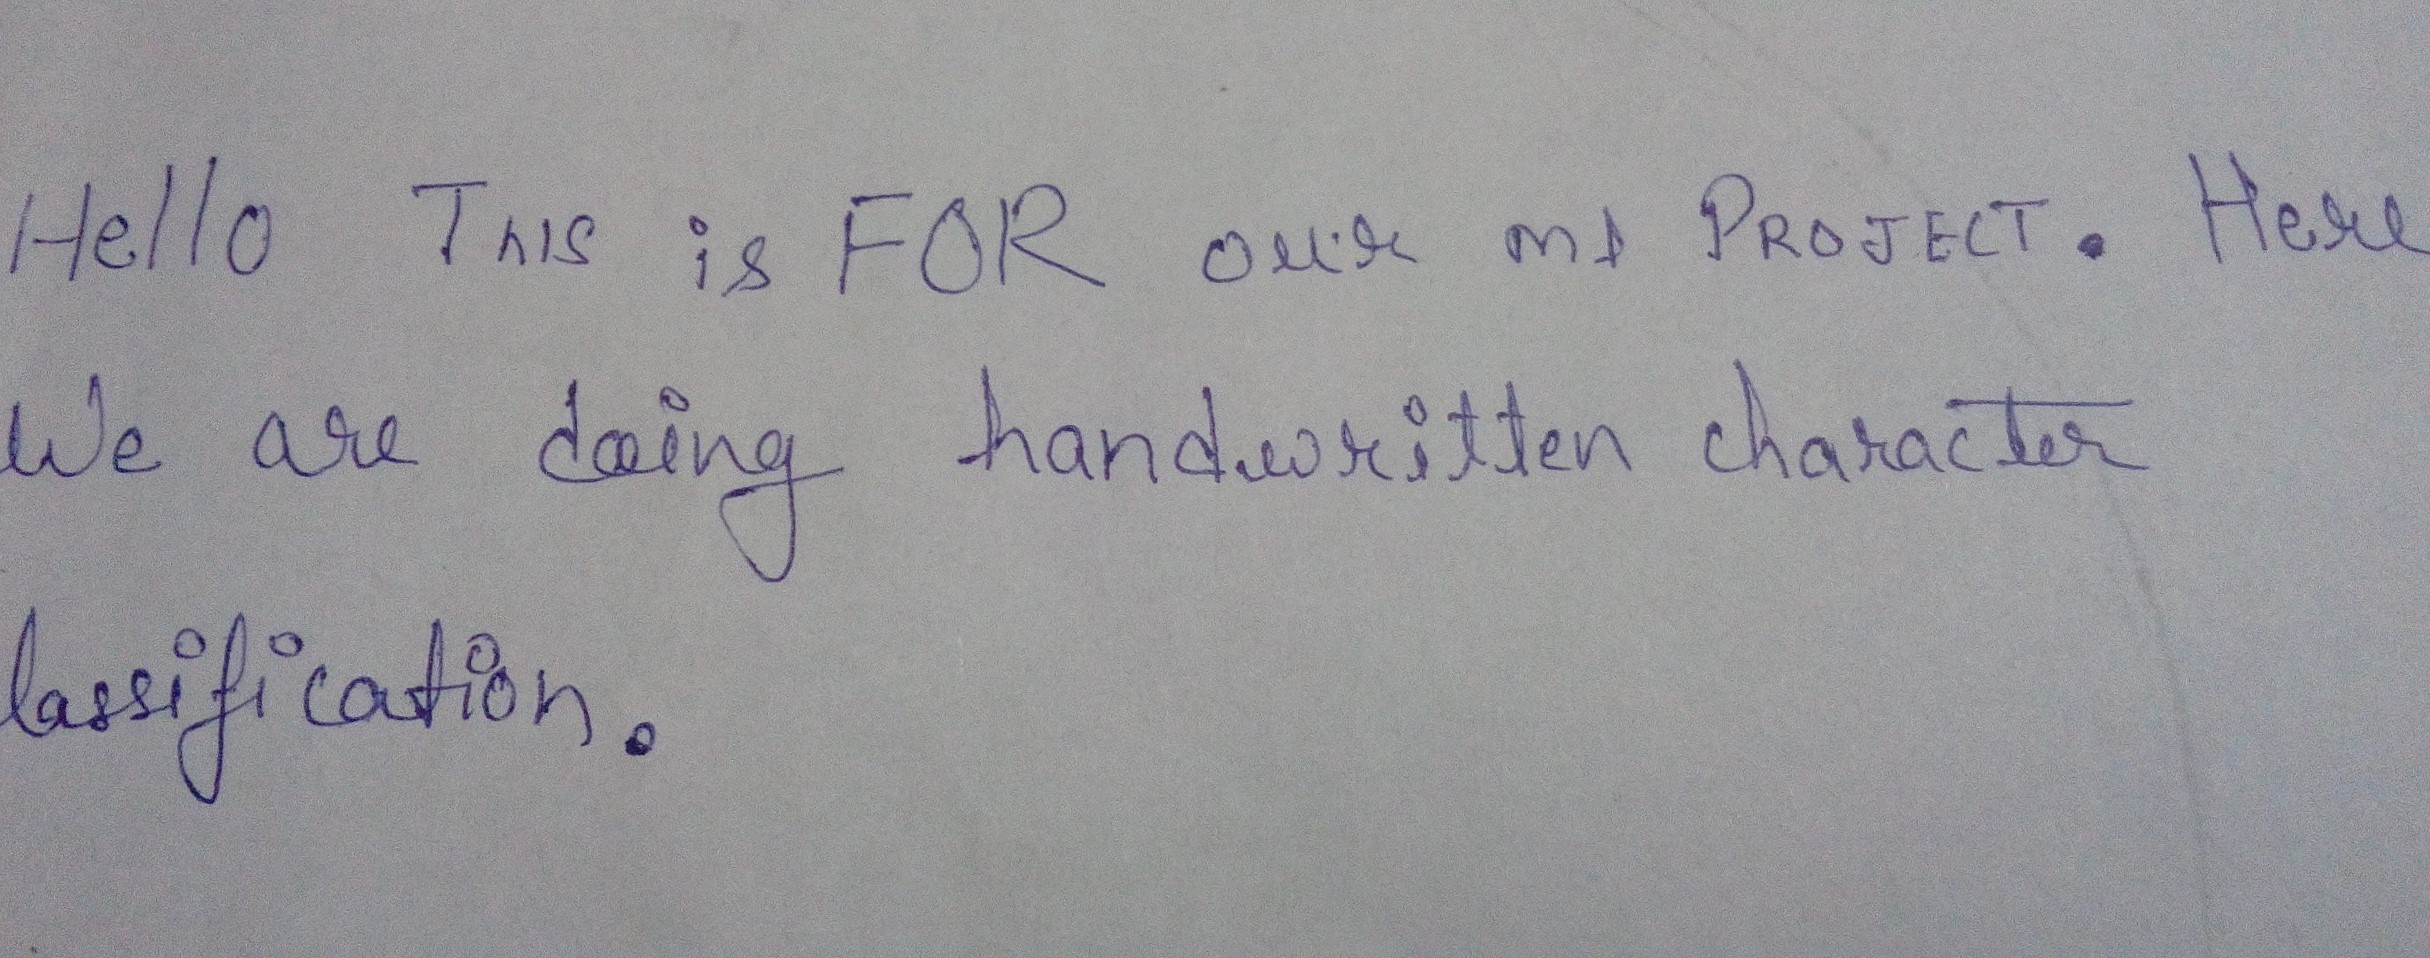 Hello This is FOR our ms PROJECT. Here
We are doing handwritten character
lassification.